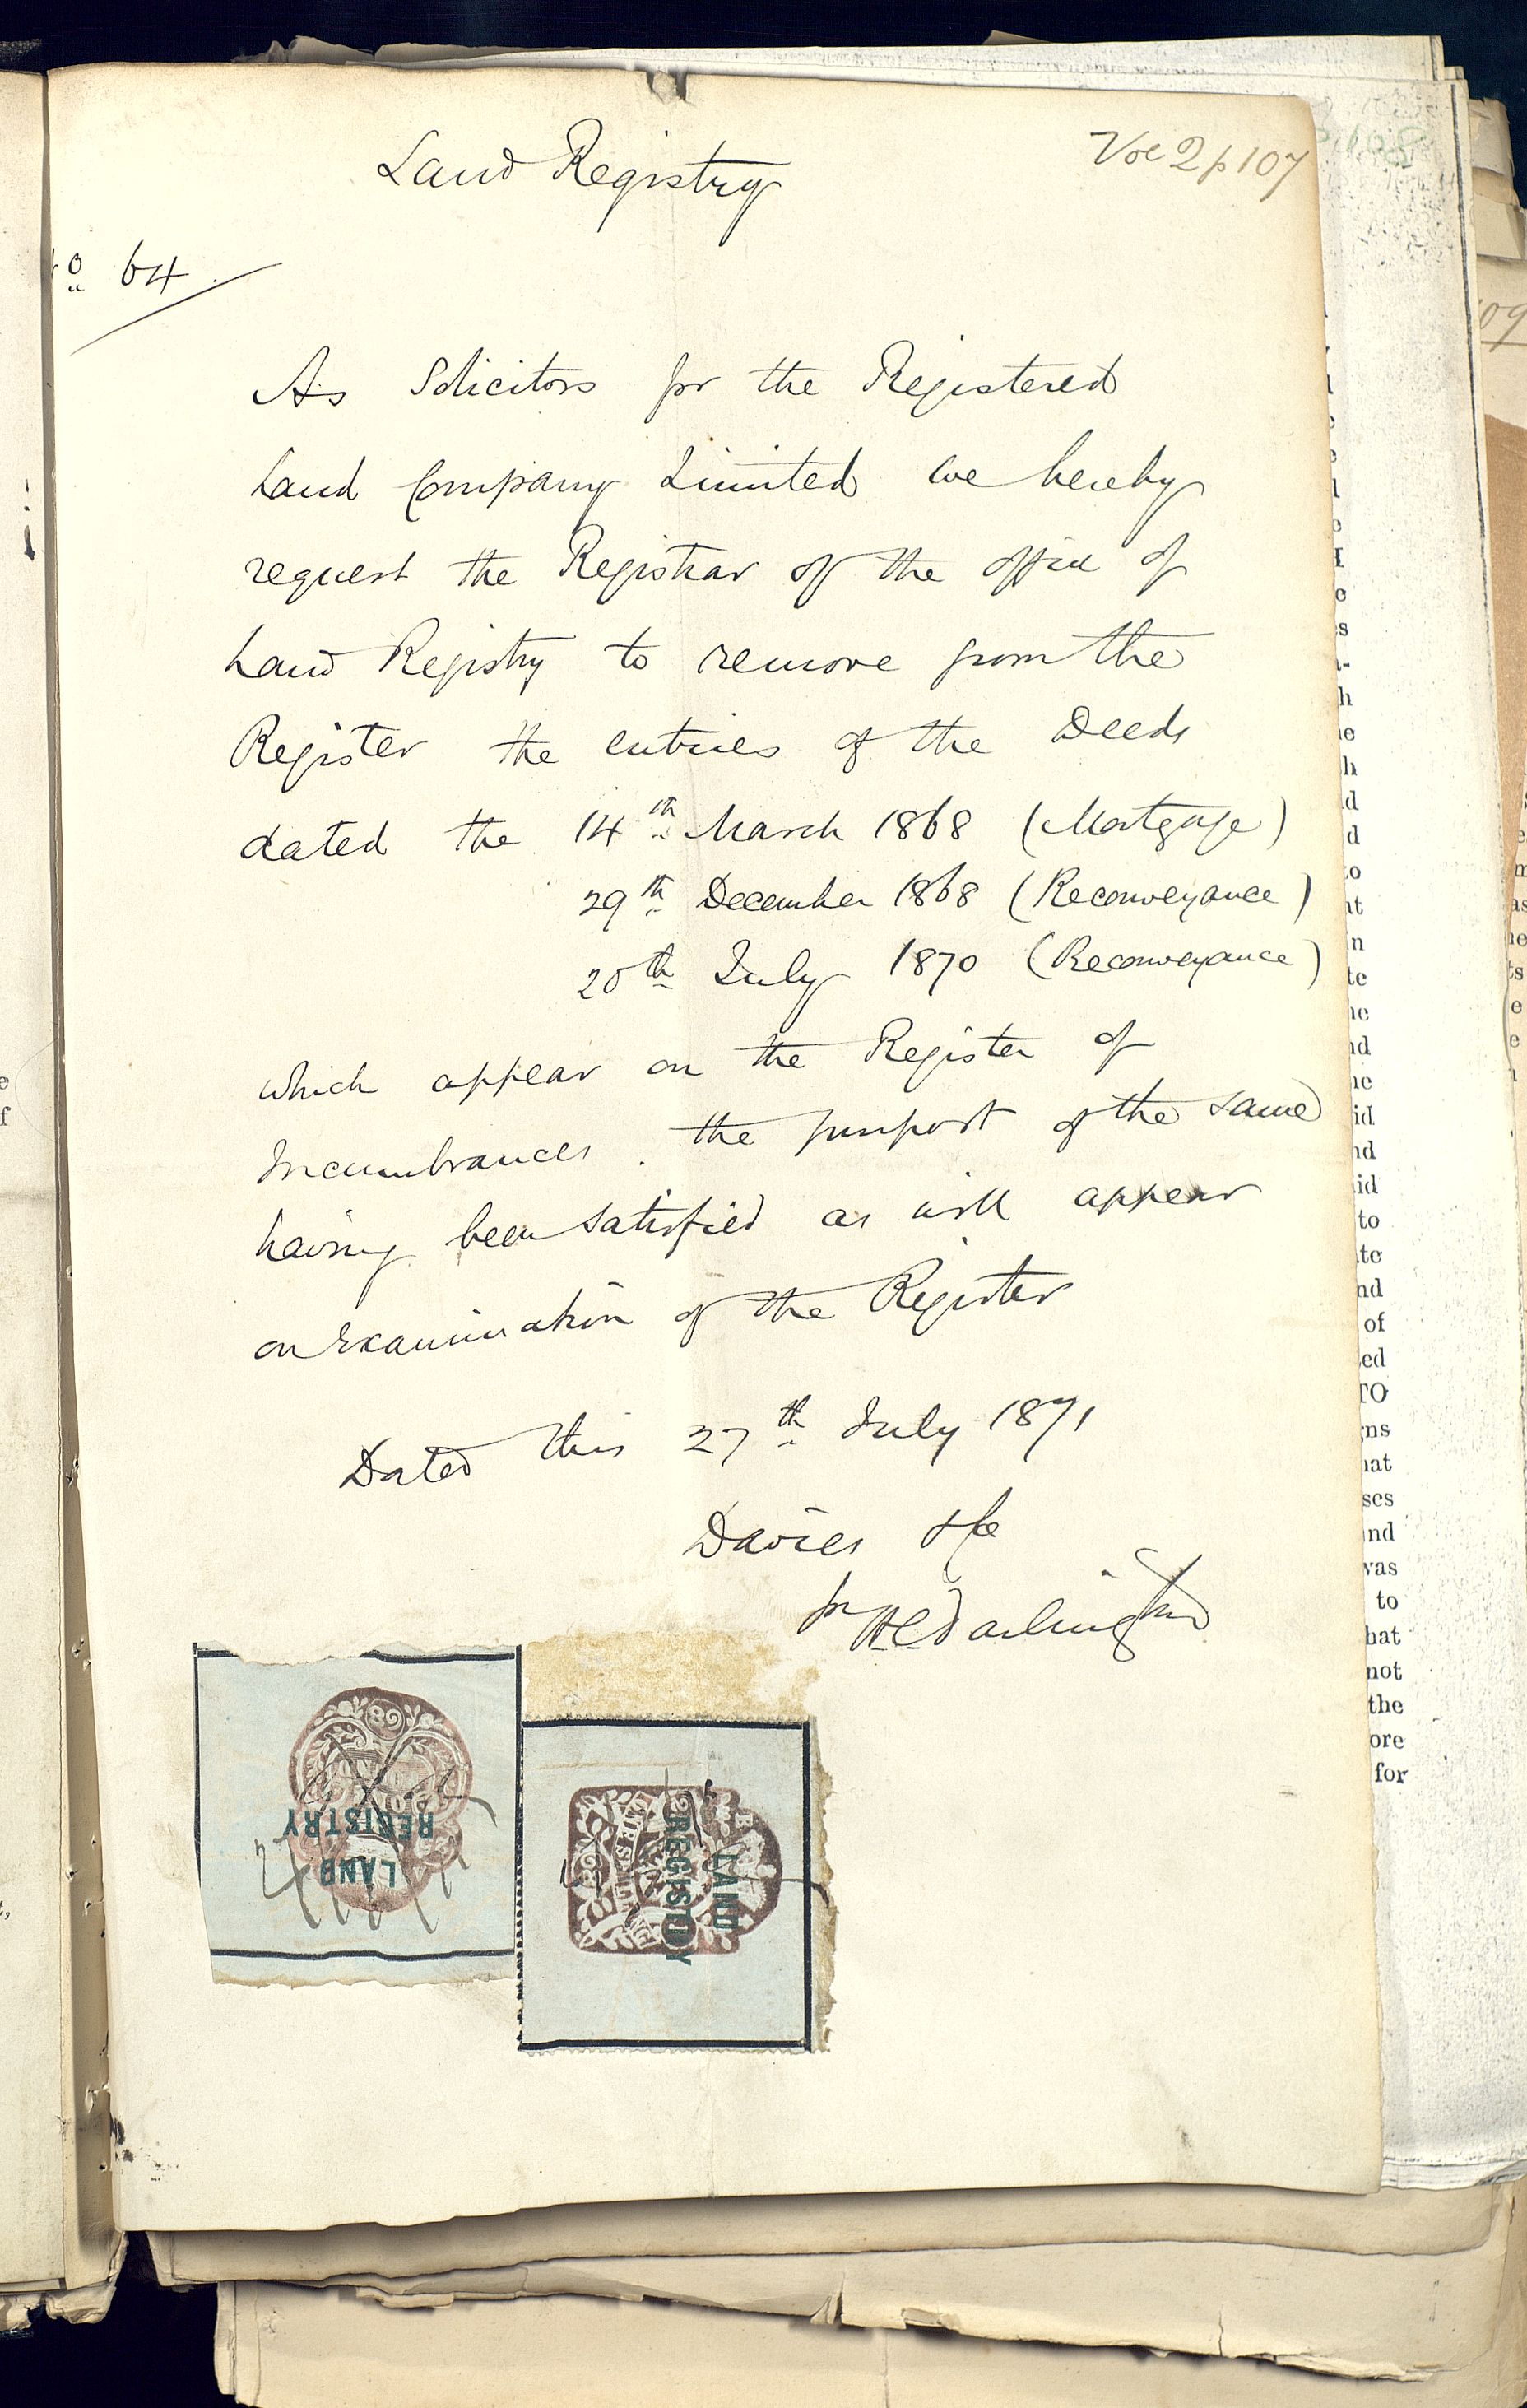 Land Registry
Vol 2 p 107
No 64
As Solicitors for the Registered
Land Company Limited we hereby
request the Registrar of the office of
Land Registry to remove from the
Register the entries of the Deeds
dated the 14th March 1868 (Mortgage)
29th December 1868 (Reconveyance)
20th July 1870 (Reconveyance)
which appear on the Register of
Incumbrances. the purport of the same
having been satisfied as will appear
on examination of the Register
Dated this 27th July 1871
Davies & Co
for H C Darlington
LAND
REGISTRY
LAND
REGISTRY